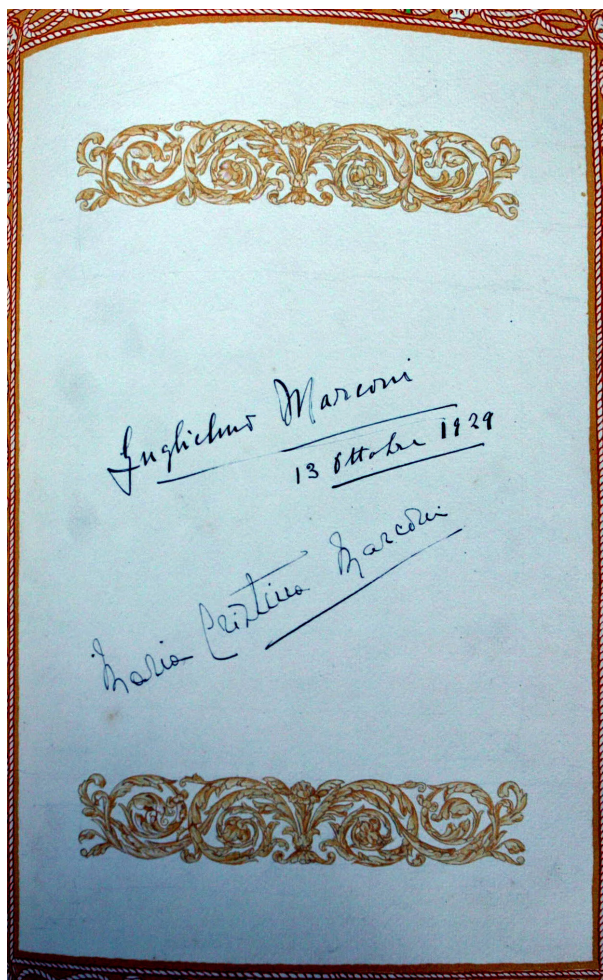 Guglielmo Marconi
13 Ottobre 1929
Maria Cristina Marconi